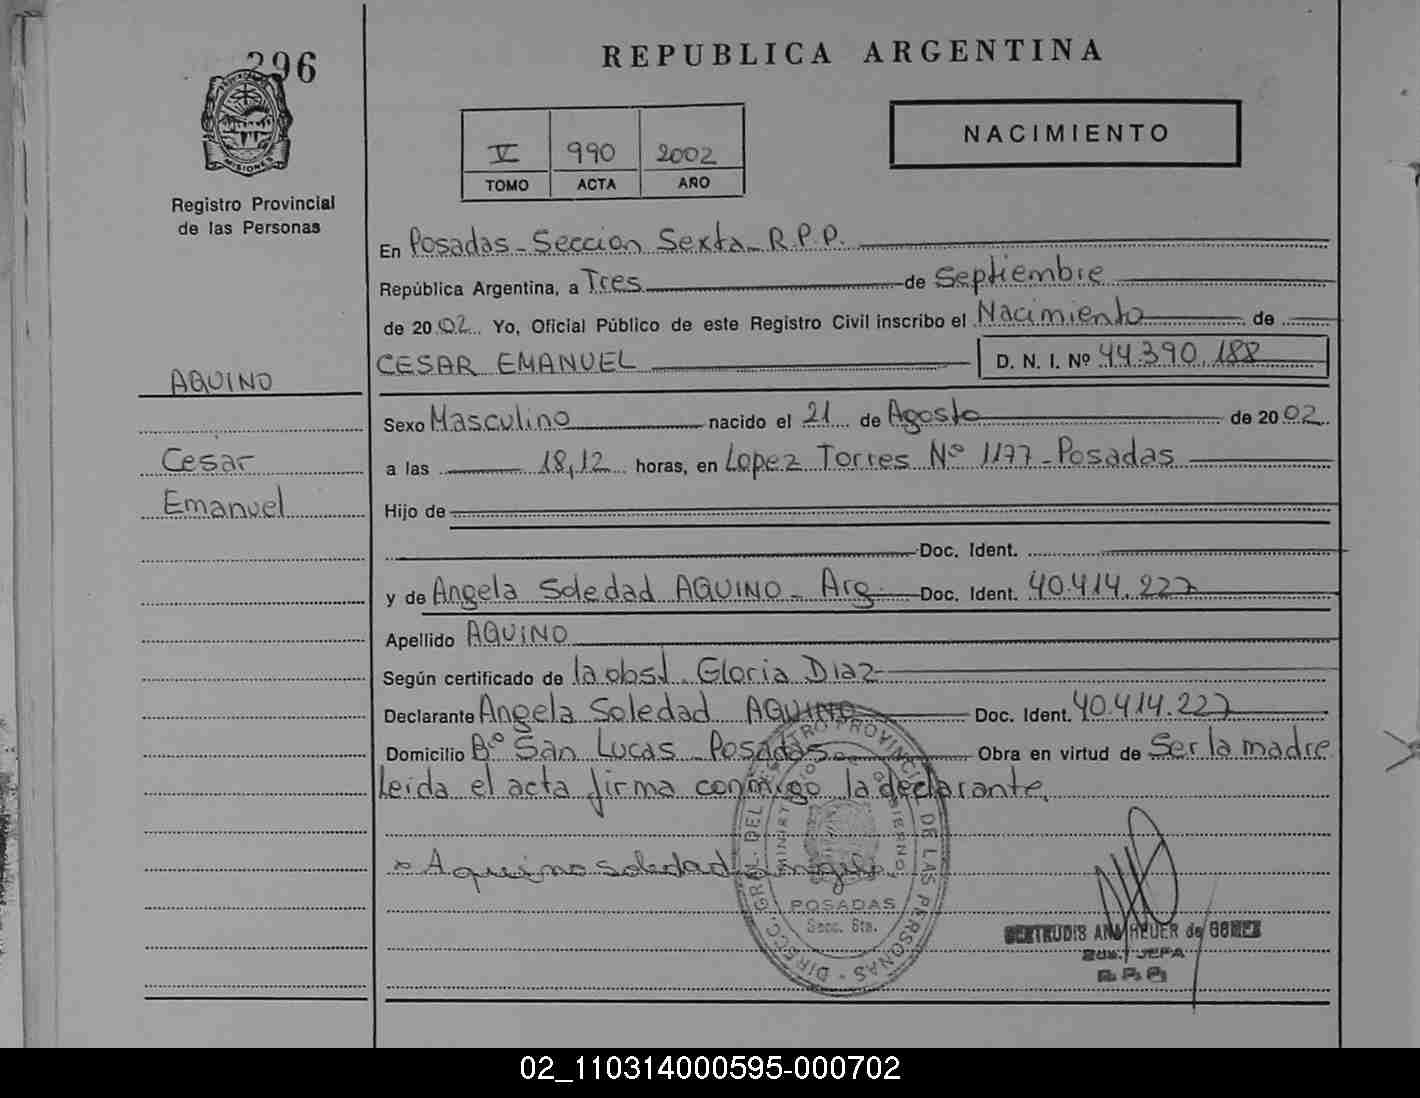 396
MISIONES
Registro Provincial
de las Personas
REPUBLICA ARGENTINA
V 990 2002
TOMO ACTA AÑO
NACIMIENTO
En Posadas - Seccion Sexta - R.P.P.
República Argentina, a Tres de Septiembre
de 2002 Yo, Oficial Público de este Registro Civil inscribo el Nacimiento de
CESAR EMANUEL D. N. I. Nº 44.390.188
AQUINO
Cesar
Emanuel
Sexo Masculino nacido el 21 de Agosto de 2002
a las 18,12 horas, en Lopez Torres Nº 1177 - Posadas
Hijo de
Doc. Ident.
y de Angela Soledad AQUINO - Arg. Doc. Ident. 40.414.227
Apellido AQUINO
Según certificado de la obst. Gloria Diaz
Declarante Angela Soledad AQUINO Doc. Ident. 40.414.227
Domicilio Bº San Lucas - Posadas Obra en virtud de Ser la madre
Leida el acta firma conmigo la declarante.
Aquino soledad angela
DIRECC. GRAL. DEL REGISTRO PROVINCIAL DE LAS PERSONAS
MINISTERIO DE GOBIERNO
POSADAS
Secc. 6ta.
GERTRUDIS ANA HEUER de GOMEZ
2da. JEFA
R.P.P.
02_110314000595-000702